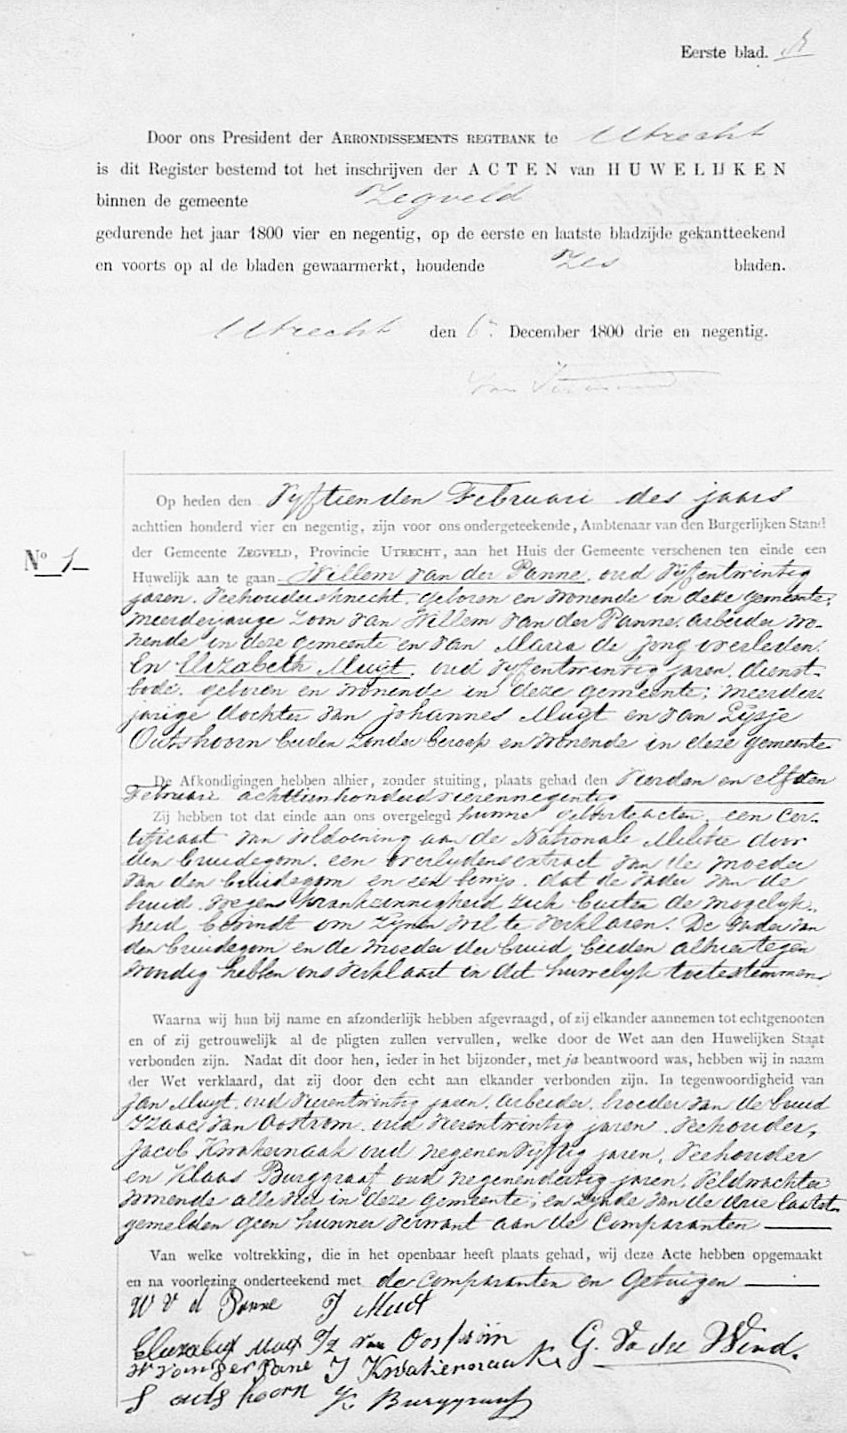 Eerste blad.
Door ons President der ARRONDISSEMENTS REGTBANK te Utrecht
is dit Register bestemd tot het inschrijven der ACTEN van HUWELIJKEN
binnen de gemeente Zegveld
gedurende het jaar 1800 vier en negentig, op de eerste en laatste bladzijde gekantteekend
en voorts op al de bladen gewaarmerkt, houdende Zes bladen.
Utrecht den 6n December 1800 drie en negentig.
No 1
Op heden den Vyftienden Februari des jaars
achttien honderd vier en negentig, zijn voor ons ondergeteekende, Ambtenaar van den Burgerlijken Stand
der Gemeente ZEGVELD, Provincie UTRECHT, aan het Huis der Gemeente verschenen ten einde een
Huwelijk aan te gaan Willem van der Panne, oud Vyfentwintig
jaren, Veehoudersknecht, geboren en wonende in deze gemeente,
meerderjarige zoon van Willem van der Panne, arbeider wo-
nende in deze gemeente en van Maria de Jong overleden.
En Elizabeth Muyt, oud vyfentwintig jaren, dienst-
bode, geboren en wonende in deze gemeente; meerder-
jarige dochter van Johannes Muyt en van Lijsje
Outshoorn beiden zonder beroep en wonende in deze gemeente
De Afkondigingen hebben alhier, zonder stuiting, plaats gehad den vierden en elfden
Februari achttienhonderd vierennegentig
Zij hebben tot dat einde aan ons overgelegd hunne geboorteacten, een cer-
tificaat van voldoening aan de Nationale Militie door
den bruidegom, een overlydensextract van de moeder
van den bruidegom en een bewys, dat de vader van de
bruid wegens krankzinnigheid zich buiten de mogelyk-
heid bevindt om zynen wil te verklaren. De vader van
den bruidegom en de moeder der bruid beiden alhier tegen
woordig hebben ons verklaart in dit huwelyk toetestemmen
Waarna wij hun bij name en afzonderlijk hebben afgevraagd, of zij elkander aannemen tot echtgenooten
en of zij getrouwelijk al de pligten zullen vervullen, welke door de Wet aan den Huwelijken Staat
verbonden zijn. Nadat dit door hen, ieder in het bijzonder, met ja beantwoord was, hebben wij in naam
der Wet verklaard, dat zij door den echt aan elkander verbonden zijn. In tegenwoordigheid van
Jan Muyt, oud vierentwintig jaren, arbeider, broeder van de bruid
Izaac van Oostrom, oud vierentwintig jaren, veehouder,
Jacob Kwakernaak oud negenenvyftig jaren, Veehouder
en Klaas Burggraaf oud negenendertig jaren, Veldwachter
wonende alle vier in deze gemeente; en zynde van de drie laatst-
gemelden geen hunner verwant aan de Comparanten
Van welke voltrekking, die in het openbaar heeft plaats gehad, wij deze Acte hebben opgemaakt
en na voorlezing onderteekend met de Comparanten en Getuigen
W v d Panne J Muct
Elizabet Muct Iz van Oostrom G. Vd der Wind.
W van der Pane J Kwakernaak
outshoorn K Burggraaf